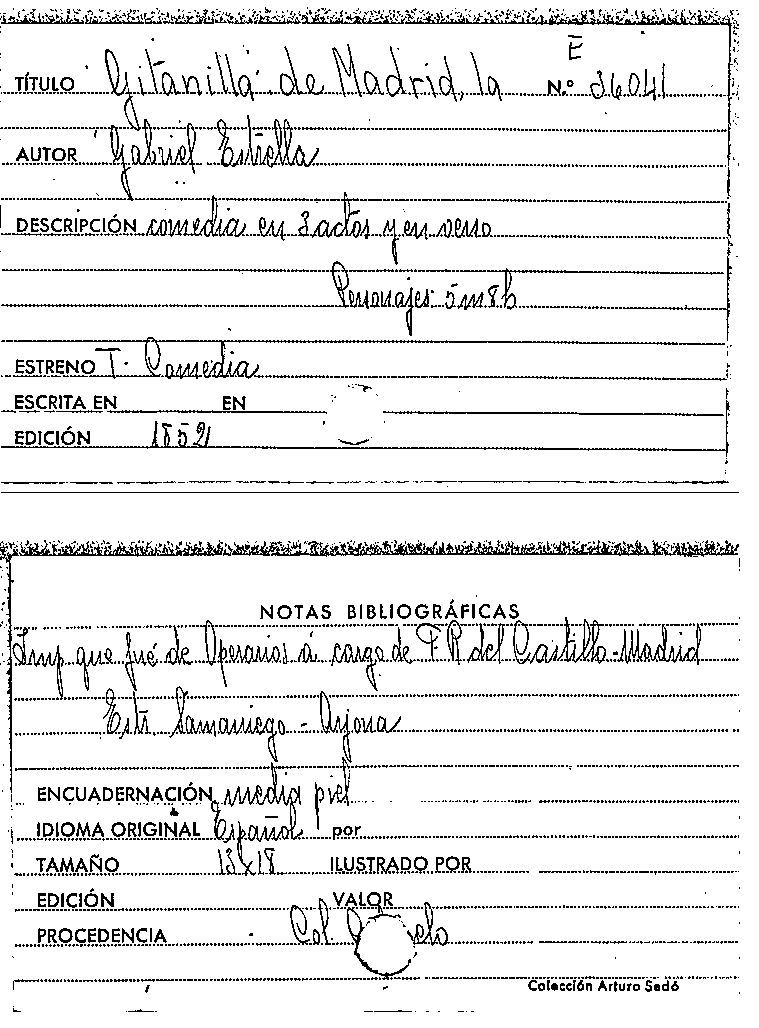 E
TÍTULO "Gitanilla" de Madrid, la N.º 36041
AUTOR Gabriel Estrella
DESCRIPCIÓN comedia en 3 actos y en verso
Personajes 5m 8h
ESTRENO T. Comedia
ESCRITA EN EN
EDICIÓN 1852
NOTAS BIBLIOGRÁFICAS
Imp que fué de Operarios á cargo de F. R. del Castillo - Madrid
Estr. Samaniego - Arjona
ENCUADERNACIÓN media piel
IDIOMA ORIGINAL Español por
TAMAÑO 13x18 ILUSTRADO POR
EDICIÓN VALOR
PROCEDENCIA Col.
Colección Arturo Sedó